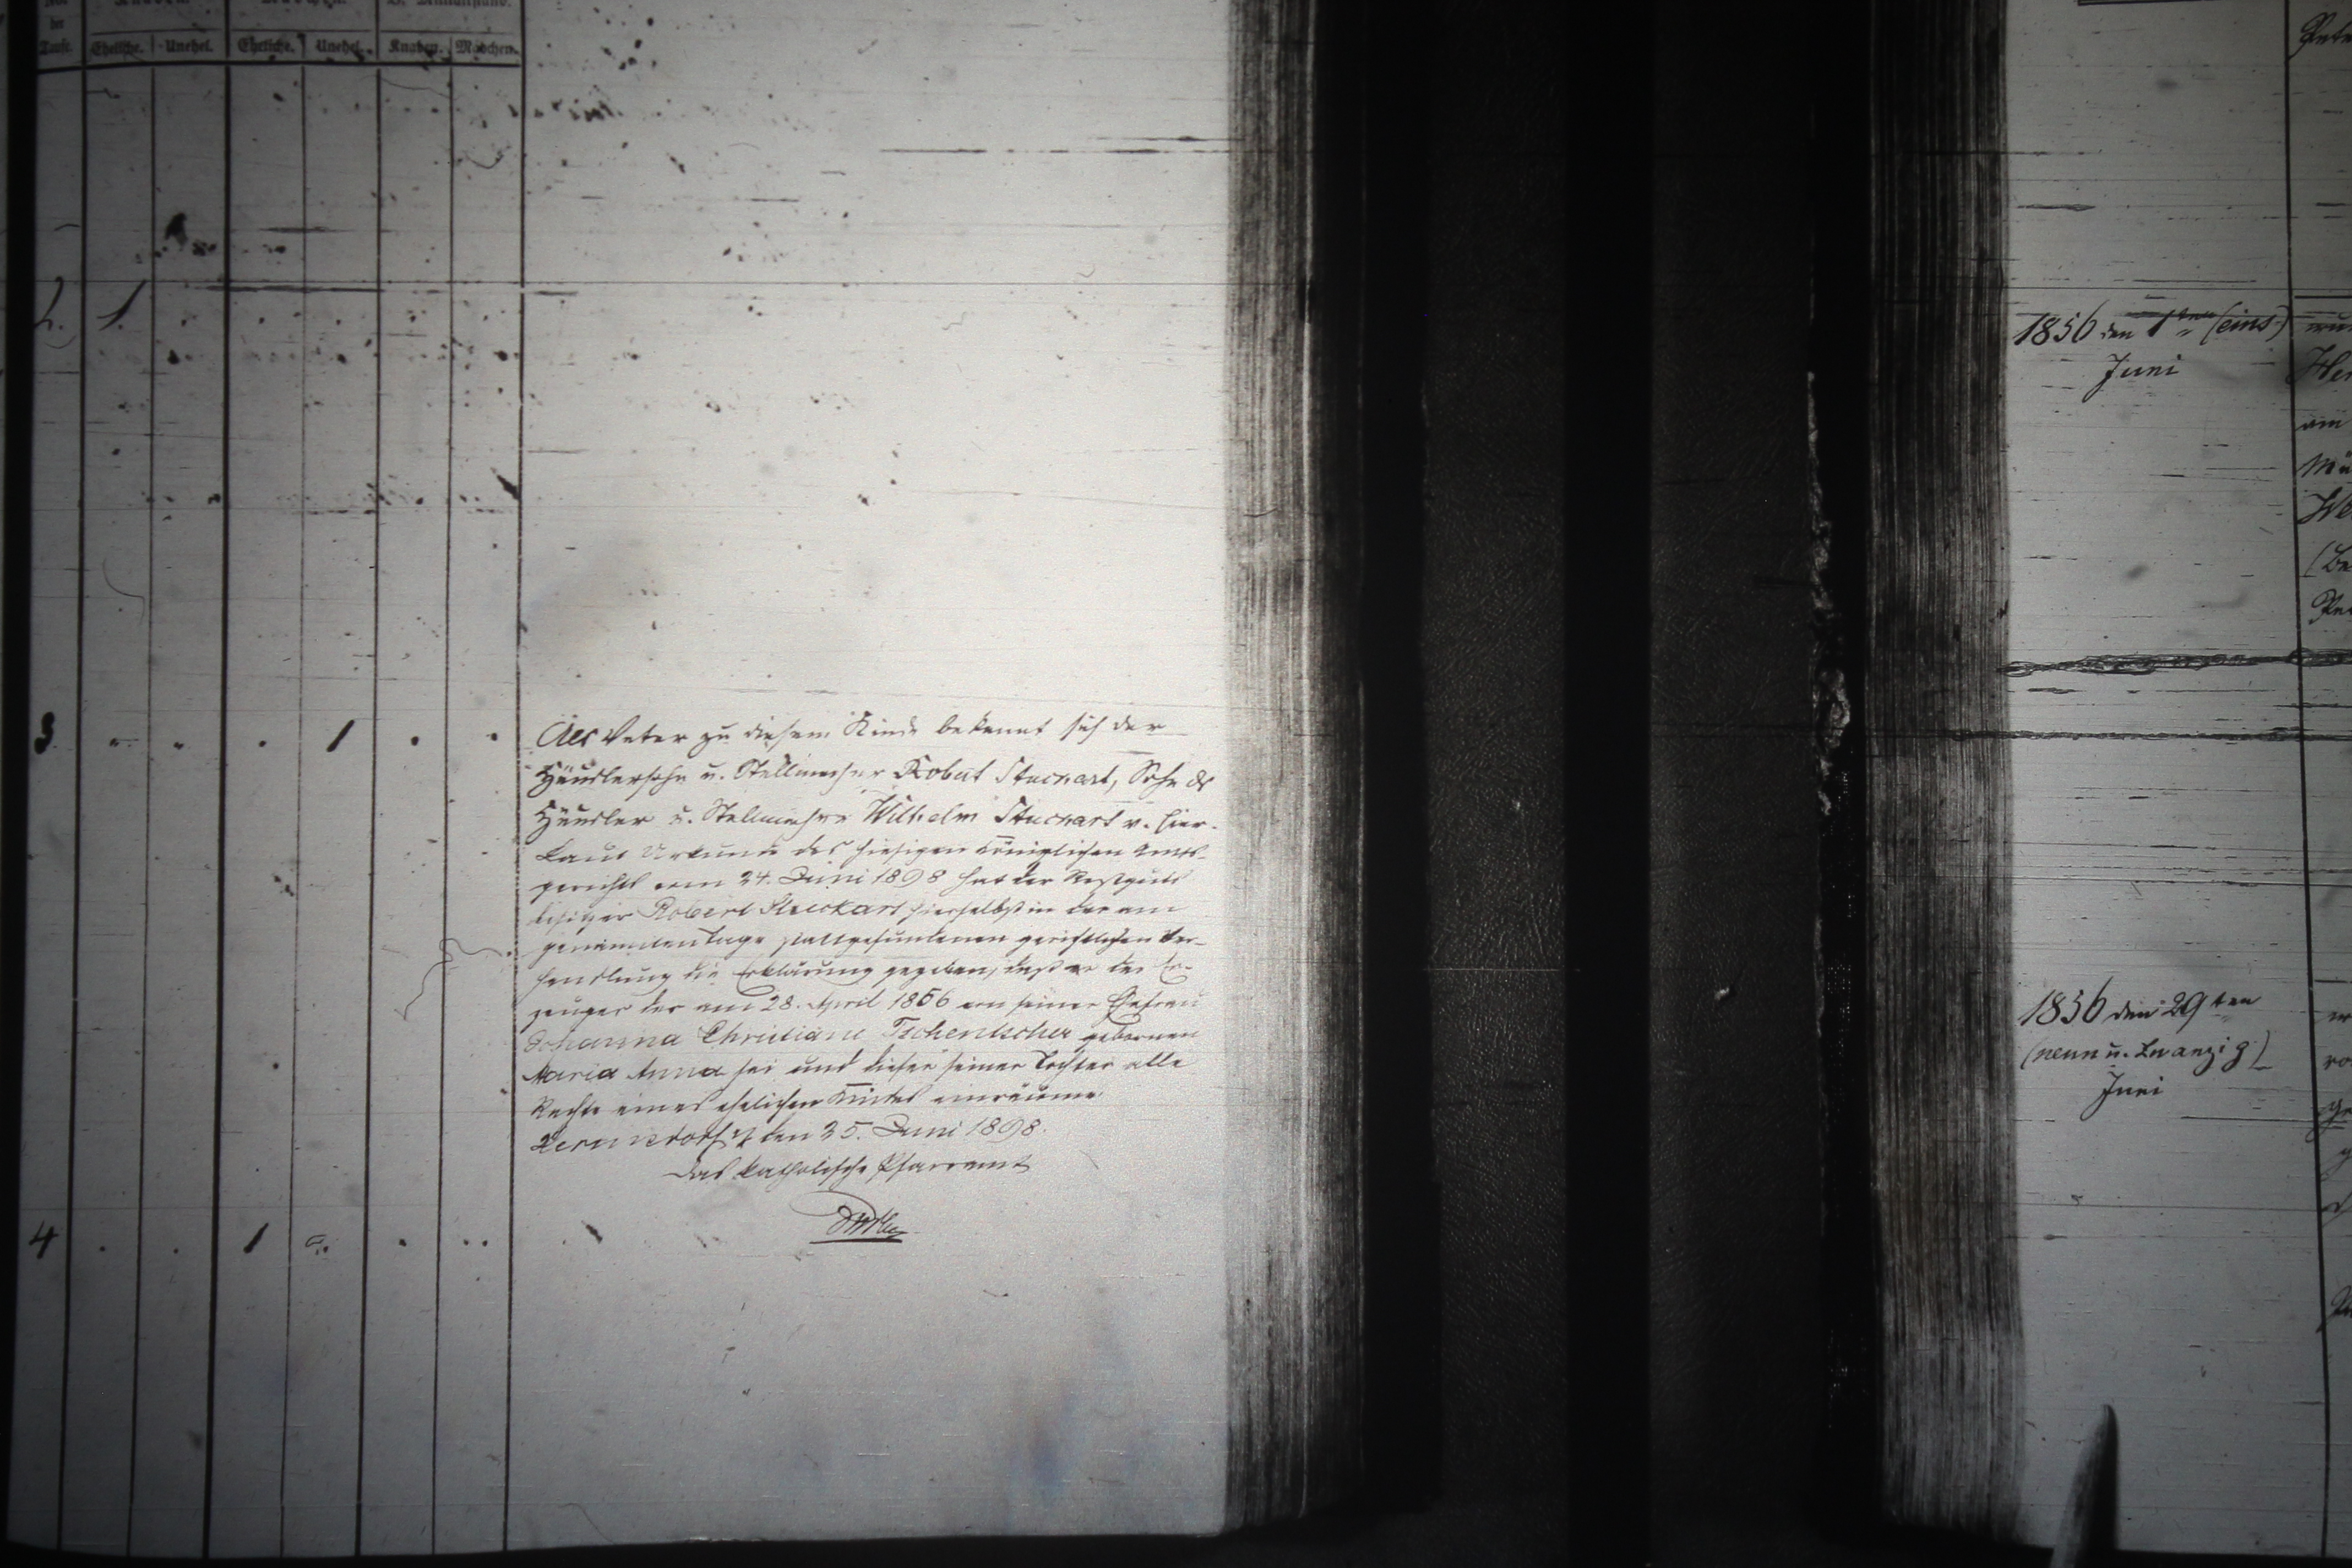 der
Taufe.
Eheliche. Unehel. Eheliche. Unehel. Knaben. Mädchen.
2. 1.
3 1
Als Vater zu diesem Kinde bekennt sich der
Häuslersohn u. Stellmacher Robert Stuckart, Sohn ds
Häusler u. Stellmachers Wilhelm Stuckart v. hier.
Laut Urkunde des hiesigen Königlichen Amts-
gerichts vom 24. Juni 1898 hat der Restguts
besitzer Robert Stuckart hierselbst in der am
genannten Tage stattgefundenen gerichtlichen Ver-
handlung die Erklärung gegeben, daß er der Er-
zeuger der am 28. April 1856 von seiner Ehefrau
Johanna Christiane Tschentscher gebornen
Maria Anna sei und dieser seiner Tochter alle
Rechte eines ehelichen Kindes einräume.
den 25. Juni 1898.
Das katholische Pfarramt
4 1
1856 den 1ten (eins)
Juni
1856 den 29ten
(neun u. Zwanzig)
Juni